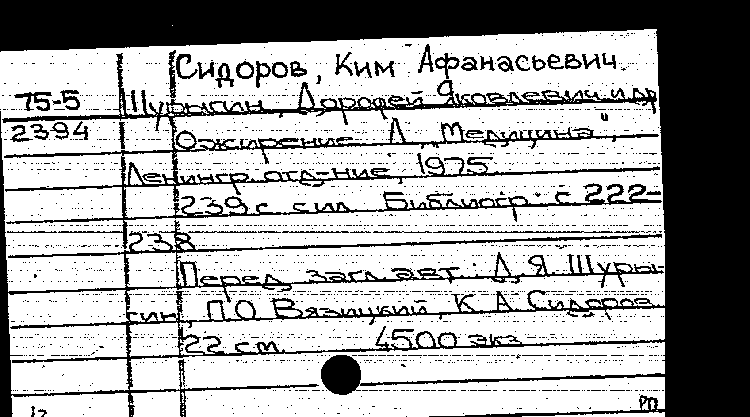 Сидоров, Ким Афанасьевич
75-5 Шурыгин, Дорофей Яковлевич и др
2394 Ожирение Л, „Медицина",
Ленингр. отд-ние, 1975
239 с с ил Библиогр: с 222-
238
Перед загл авт: Д. Я. Шуры-
гин, П. О Вязицкий, К. А. Сидоров
22 см 4500 экз
12 РП